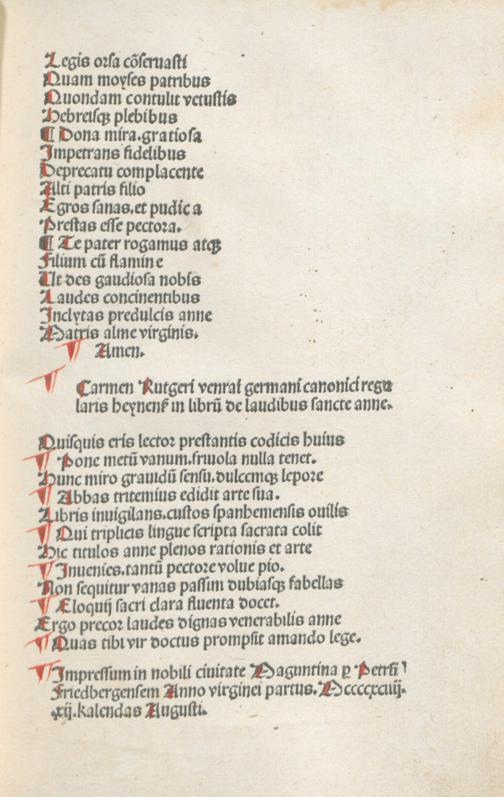 Legis orsa cōseruasti
Quam moyses patribus
Quondam contulit vetustis
Hebreisqꝫ plebibus
¶ Dona mira.gratiosa
Impetrans fidelibus
Deprecatu complacente
Alti patris filio
Egros sanas.et pudica
Prestas esse pectora.
¶ Te pater rogamus atqꝫ
Filium cū flamine
Ut des gaudiosa nobis
Laudes concinentibus
Inclytas predulcis anne
Matris alme virginis.
¶ Amen.
¶ Carmen Rutgeri venral germani canonici regu
laris heynenꝭ in librū de laudibus sancte anne.
Quisquis eris lector prestantis codicis huius
¶ Pone metū vanum.friuola nulla tenet.
Hunc miro grauidū sensu.dulcemqꝫ lepore
¶ Abbas tritemius edidit arte sua.
Libris inuigilans.custos spanhemensis ouilis
¶ Qui triplicis lingue scripta sacrata colit
Hic titulos anne plenos rationis et arte
¶ Inuenies.tantū pectore volue pio.
Non sequitur vanas passim dubiasqꝫ fabellas
¶ Eloquij sacri clara fluenta docet.
Ergo precor laudes dignas venerabilis anne
¶ Quas tibi vir doctus prompsit amando lege.
¶ Impressum in nobili ciuitate Maguntina ꝑ Petrū
Friedbergensem Anno virginei partus.Mccccxciiij.
xij.kalendas Augusti.